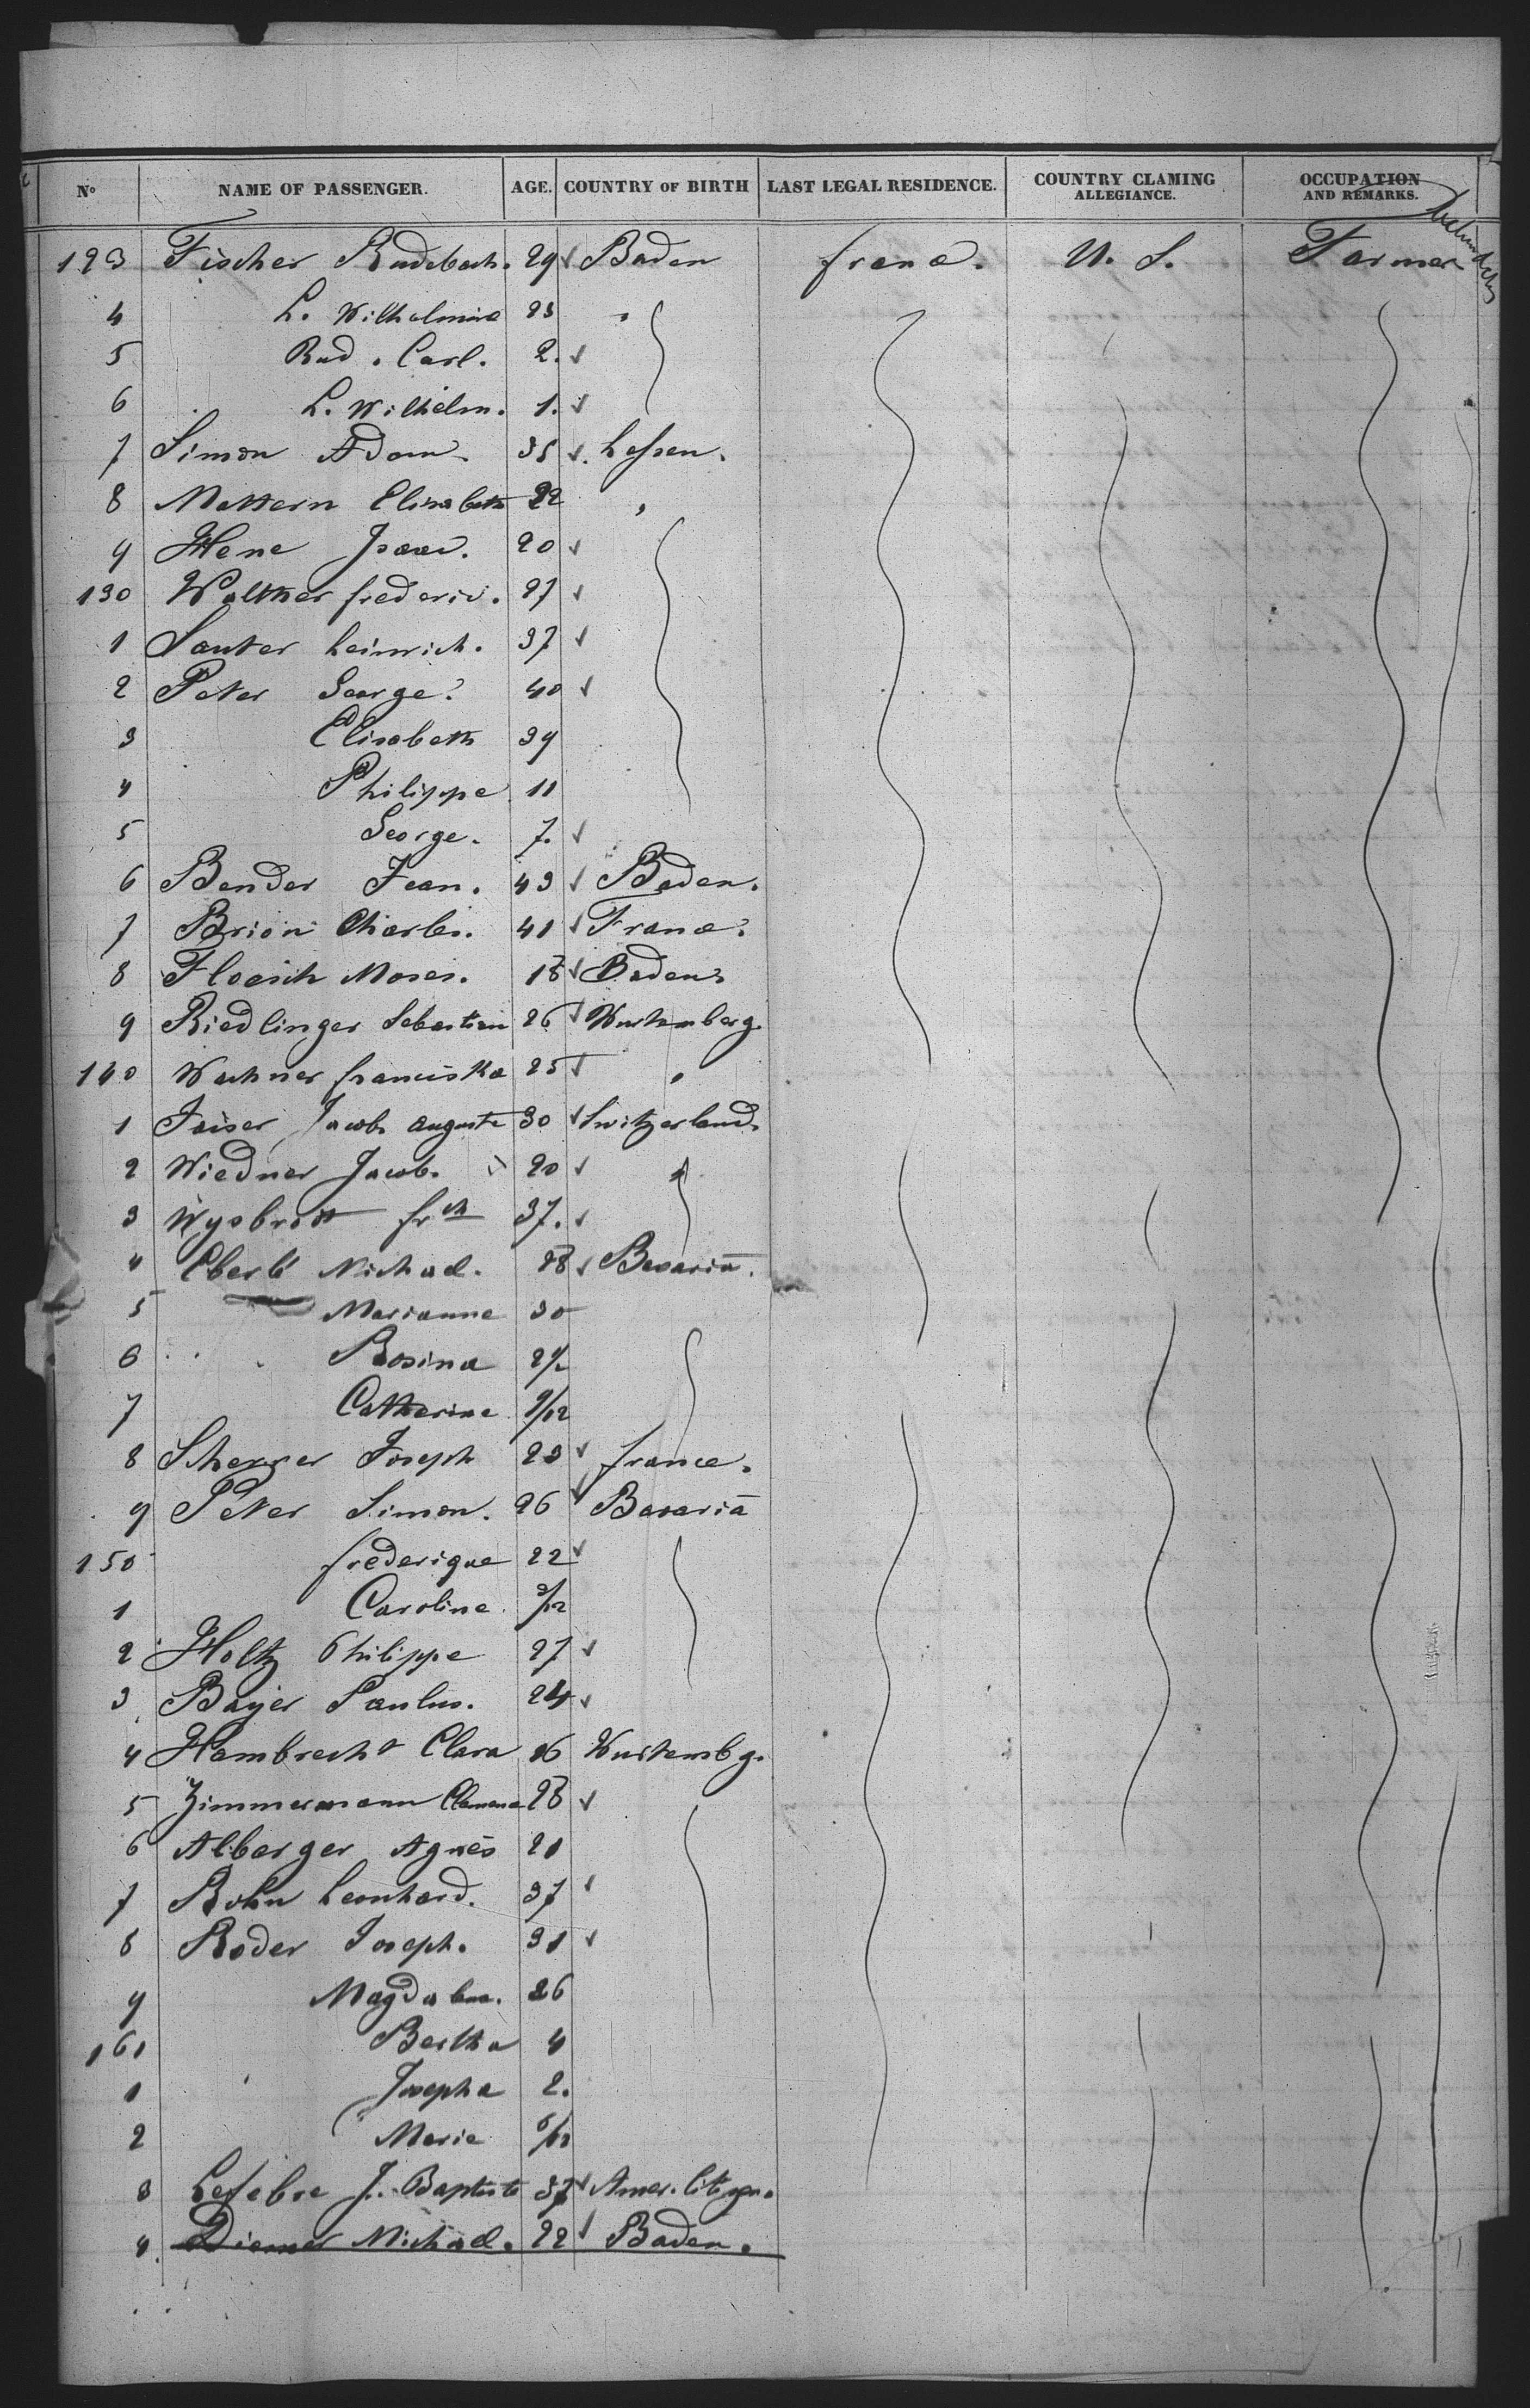 No NAME OF PASSENGER. AGE. COUNTRY OF BIRTH LAST LEGAL RESIDENCE. COUNTRY CLAMING ALLEGIANCE. OCCUPATION AND REMARKS.
123 Fischer Rudebach. 29 Baden france. U. S. Farmer
4 L. Wilhelmine 23 "
5 Rud. Carl. 2.
6 L. Wilhelm. 1.
7 Simon Adam. 35 hessen.
8 Mattern Elisabeth 22 "
9 Hene Isaac. 20
130 Walther frederic. 27
1 Sauter heinrich. 37
2 Peter George. 40
3 Elisabeth 39
4 Philippe 11
5 George. 7.
6 Bender Jean. 43 Baden.
7 Brion Charles. 41 France.
8 Floesch Moses. 18 Baden.
9 Riedlinger Sebastian 26 Wurtemberg.
140 Wachner franciska 25 "
1 Jaiser Jacob auguste 30 Switzerland.
2 Wiedner Jacob. 20 "
3 Wysbrodt frch 37.
4 Eberlé Michael. 28 Bavaria.
5 Marianne 30
6 Rosina 2½
7 Catherine 9/12
8 Scherrer Joseph 23 france.
9 Peter Simon. 26 Bavaria
150 frederique 22
1 Caroline 3/12
2 Holtz Philippe 27
3 Bayer Paulus. 24
4 Hambrecht Clara 16 Wurtembg.
5 Zimmermann Clemence 28
6 Alberger Agnes 21
7 Rohn Leonhard. 37
8 Roder Joseph. 31
9 Magdalena. 26
161 Bertha 4
1 Josepha 2.
2 Marie 6/12
3 Lefebre J. Baptiste 37 Amer. Citizen.
4. Diemer Michael. 22 Baden.